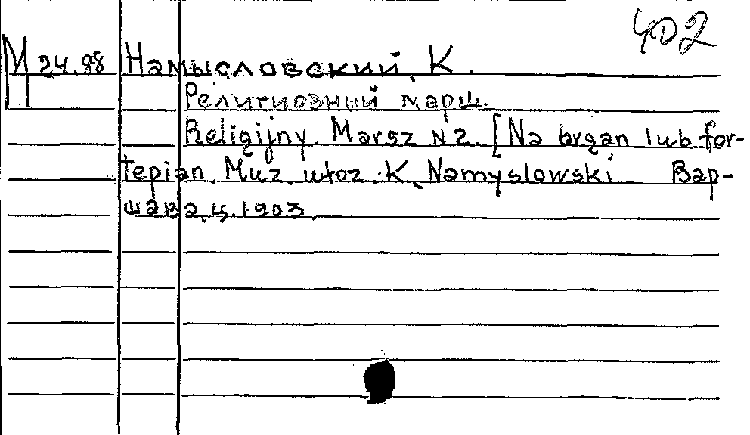 402
М 24.88 Намысловский, К.
Религиозный марш.
Religijny Marsz N 2. [Na organ lub for-
tepian. Muz. utoz. K. Namyslowski Вар-
шава, ц. 1903.